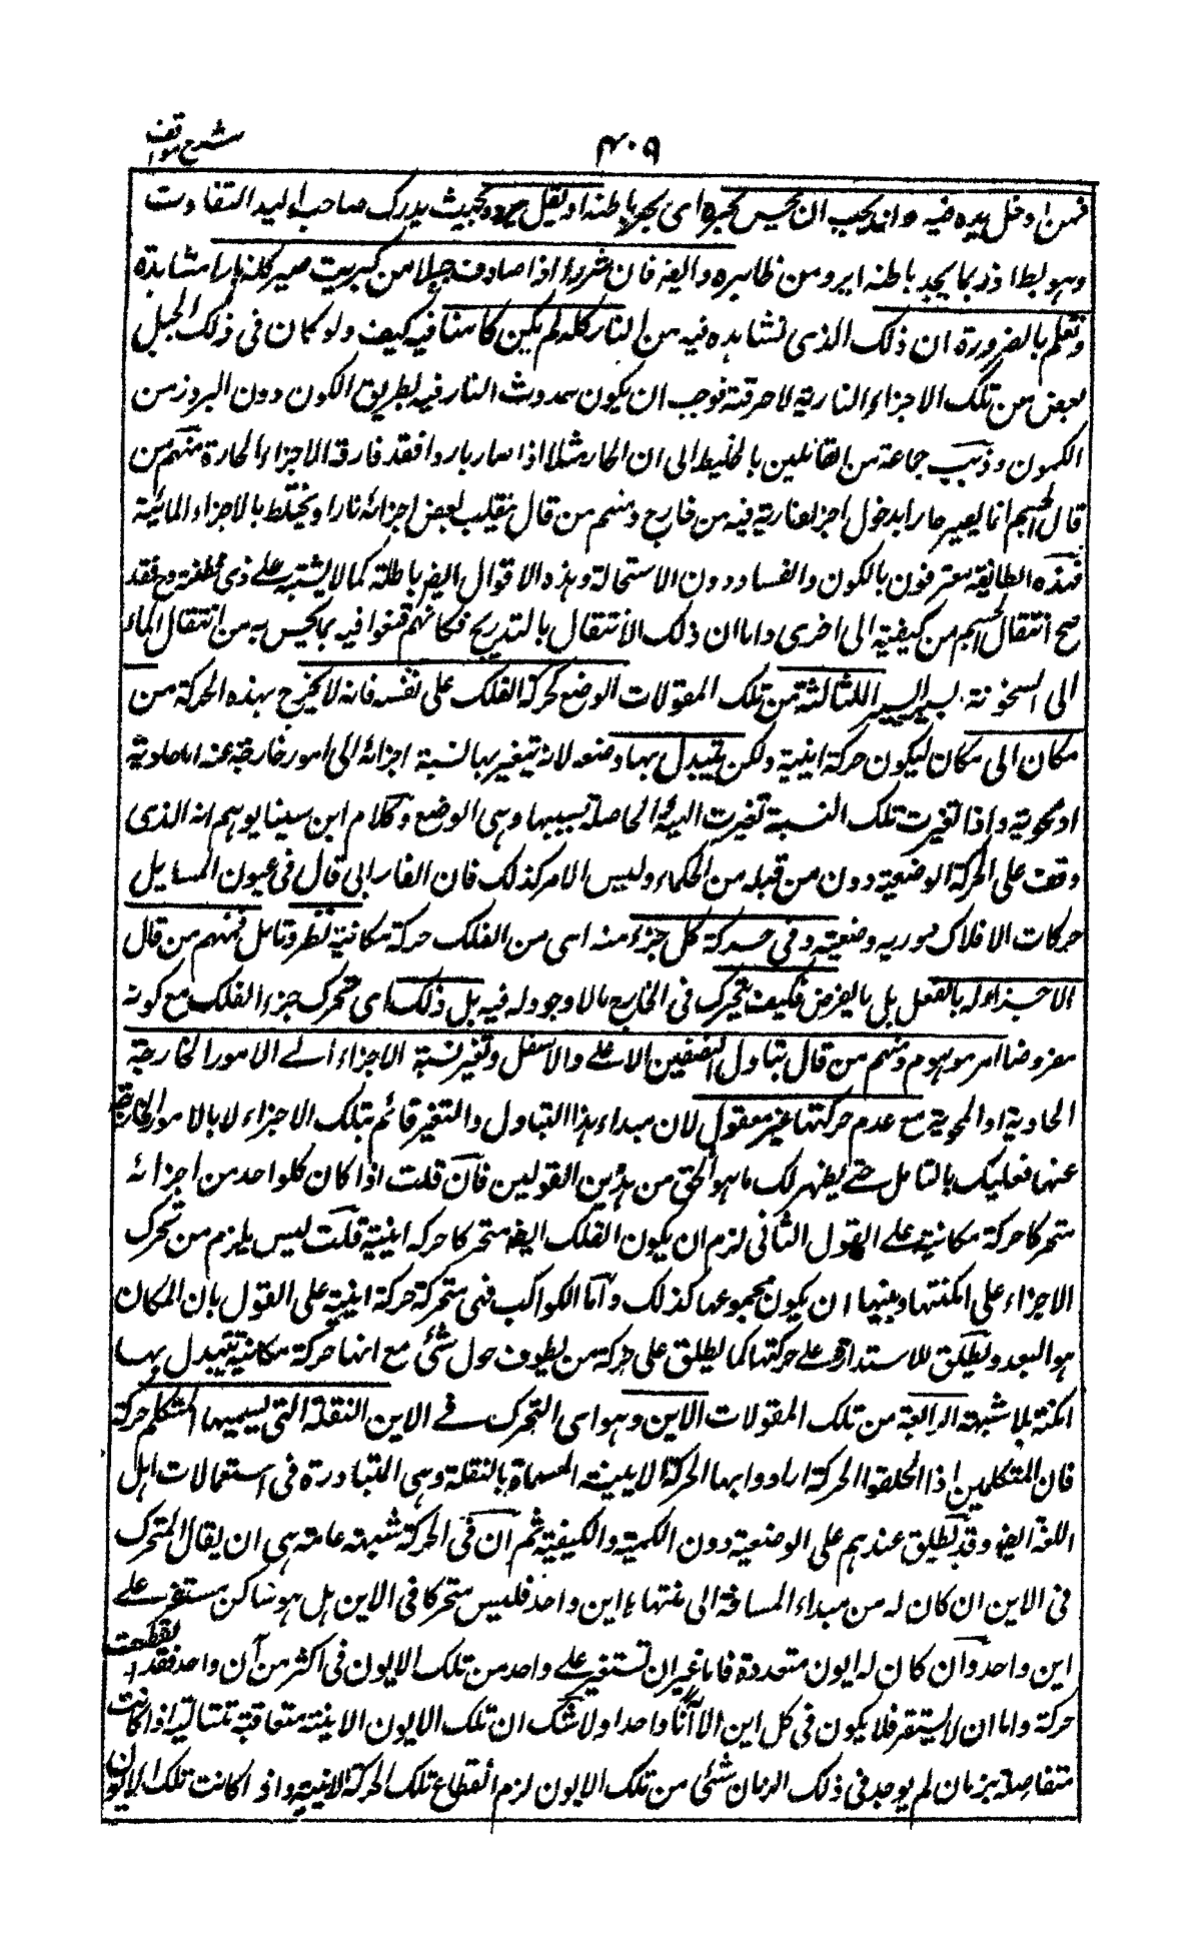 شرح مواقف
۴۰۹
فمن ادخل يده فيه وانه يجب ان يحس بحره اى بحر باطنه او يقل برده بحيث يدرك صاحب اليد التفاوت
وهو بط اذ ربما يجد باطنه ابرد من ظاهره وايضا فان شررا اذا صادف جبلا من كبريت صير كله نارا مشاهدة
ونعلم بالضرورة ان ذلك الذى نشاهده فيه من النار كله لم يكن كامنا فيه كيف ولو كان فى ذلك الجبل
بعض من تلك الاجزاء النارية لاحرقته فوجب ان يكون حدوث النار فيه بطريق الكون دون البروز من
الكمون وذهب جماعة من القائلين بالخليط الى ان الحار مثلا اذا صار باردا فقد فارقه الاجزاء الحارة منهم من
قال الجسم انما يصير حارا بدخول اجزاء نارية فيه من خارج ومنهم من قال ينقلب بعض اجزائه نارا ويختلط بالاجزاء المائية
فهذه الطائفة معترفون بالكون والفساد دون الاستحالة وهذه الاقوال ايضا باطلة كما لا يشتبه على ذى فطنة وح فقد
صح انتقال الجسم من كيفية الى اخرى واما ان ذلك الانتقال بالتدريج فكانهم قنعوا فيه بما يحس به من انتقال الماء
الى السخونة يسيرا يسيرا الثالثة من تلك المقولات الوضع كحركة الفلك على نفسه فانه لا يخرج بهذه الحركة من
مكان الى مكان ليكون حركة اينية ولكن يتبدل بها وضعه لانه تيغير بها نسبة اجزائه الى امور خارجة عنه اما حاوية
او محوية واذا تغيرت تلك النسبة تغيرت الهيئة الحاصلة بسببها وهى الوضع وكلام ابن سينا يوهم انه الذى
وقف على الحركة الوضعية دون من قبله من الحكماء وليس الامر كذلك فان الفارابى قال فى عيون المسايل
حركات الافلاك دورية وضعية وفى حركة كل جزء منه اى من الفلك حركة مكانية نظر وتامل فمنهم من قال
لا جزء له بالفعل بل بالفرض فكيف يتحرك فى الخارج ما لا وجود له فيه بل ذلك اى تحرك جزء الفلك مع كونه
مفروضا امر موهوم ومنهم من قال تبادل النصفين الاعلى والاسفل وتغير نسبة الاجزاء الى الامور الخارجة
الحاوية او المحوية مع عدم حركتها غير معقول لان مبداء هذا التبادل والتغير قائم بتلك الاجزاء لا بالامور الخارجة
عنها فعليك بالتامل حتى يظهر لك ما هو الحق من هذين القولين فان قلت اذا كان كل واحد من اجزائه
متحركا حركة مكانية على القول الثانى لزم ان يكون الفلك ايضا متحركا حركة اينية قلت ليس يلزم من تحرك
الاجزاء على امكنتها وبينها ان يكون مجموعها كذلك واما الكواكب فهى متحركة حركة اينية على القول بان المكان
هو البعد ويطلق الاستدارة على حركتها كما يطلق على حركة من يطوف حول شئ مع انها حركة مكانية يتبدل بها
امكنة بلا شبهة الرابعة من تلك المقولات الاين وهو اى التحرك فى الاين النقلة التى يسميها المتكلم حركة
فان المتكلمين اذا اطلقوا الحركة ارادوا بها الحركة الاينية المسماة بالنقلة وهى المتبادرة فى استعمالات اهل
اللغة ايضا وقد يطلق عندهم على الوضعية دون الكمية والكيفية ثم ان فى الحركة شبهة عامة هى ان يقال المتحرك
فى الاين ان كان له من مبداء المسافة الى منتهاها اين واحد فليس متحركا فى الاين بل هو ساكن مستقر على
اين واحد وان كان له ايون متعددة فاما غير ان تستقر على واحد من تلك الايون فى اكثر من آن واحد فقد انقطعت
حركة واما ان لا يستقر فلا يكون فى كل اين الا آنا واحدا ولا شك ان تلك الايون الاينية متعاقبة متتالية اذ لو كانت
متفاصلة بزمان لم يوجد فى ذلك الزمان شئ من تلك الايون لزم انقطاع تلك الحركة الاينية واذا كانت تلك الايون